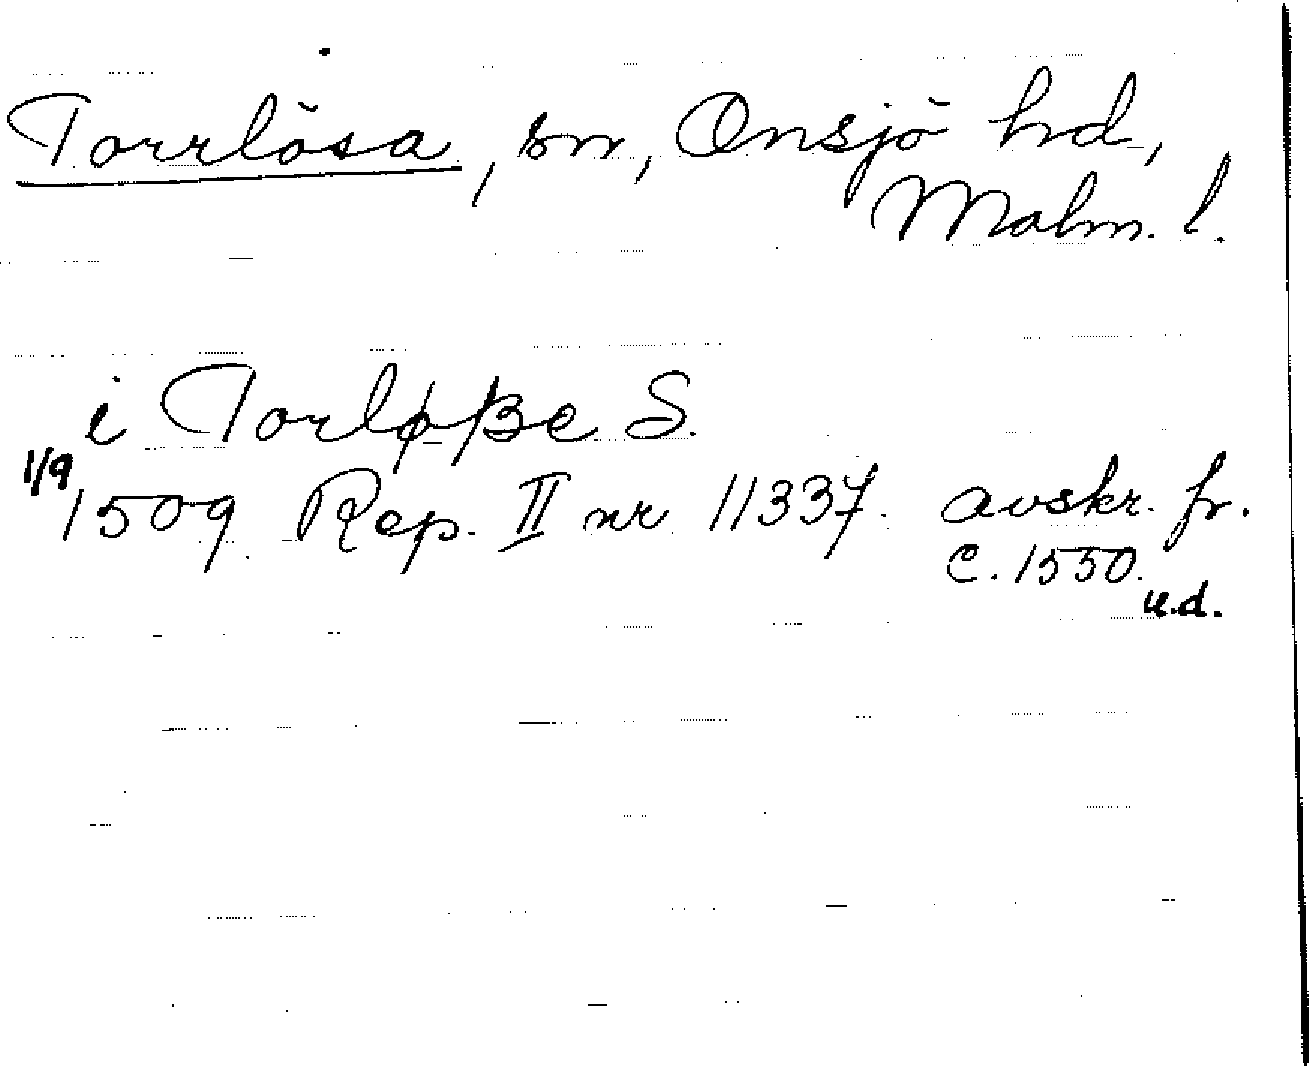 Torrlösa, sn, Onsjö hd,
Malm. l.
i Torløße S.
1/9
1509 Rep. II nr 11337. avskr. fr.
c. 1550.
u.d.